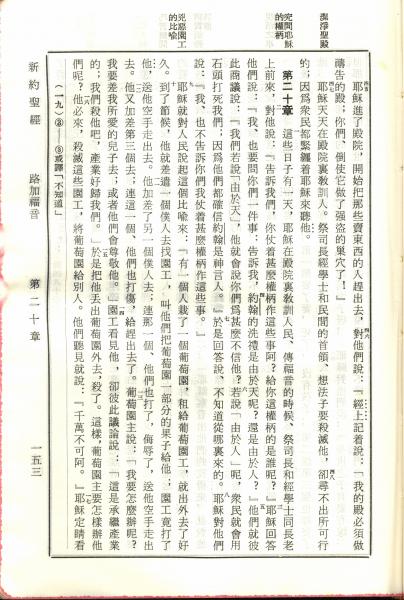 潔淨聖殿
究問耶穌
的權柄
兇惡園工
的比喻
耶穌進了殿院,開始把那些賣東西的人趕出去,對他們說:『經上記着說:「我的殿必須做
禱告的殿;你們,倒使它做了强盜的巢穴了!』
耶穌天天在殿院裏教訓人。祭司長經學士和民間的首領、想法子要殺滅他,卻尋不出所可行
的;因爲衆民都緊纏着耶穌來聽他。
第二十章 這些日子有一天,耶穌在殿院裏教訓人民、傳福音的時候、祭司長和經學士同長老
上前來,對他說:『告訴我們,你仗着甚麼權柄作這些事阿?給你這權柄的是誰呢?』耶穌回答
他們說:『我、也要問你們一件事;告訴我,約翰的洗禮是由於天呢?還是由於人?』他們就彼
此商議說:『我們若說「由於天」,他就會說你們爲甚麼不信他?若說「由於人」呢,衆民就會用
石頭打死我們;因爲他們都確信約翰是神言人。』於是回答說、不知道從哪裏來的。耶穌對他們
說:『我、也不告訴你們我仗着甚麼權柄作這些事。』
耶穌就對人民說起這個比喻來:『有一個人栽了一個葡萄園,租給葡萄園工,就出外去了好
久。到了節候,他就差遣一個僕人去找園工,叫他們把葡萄園一部分的果子給他;園工竟打了
他,送他空手走出去。他又加差了另一個僕人去;連那一個、他們也打了,侮辱了,送他空手走出
去。他又加差第三個去;連這一個、他們也打傷,給趕出去了。葡萄園主說:「我要怎麼辦呢?
我要差我所愛的兒子去;或者他們會尊敬他。」園工看見他,卻彼此議論說:「這是承繼產業
的;我們殺他吧,產業好歸我們。」於是把他丟出葡萄園外去,殺了。這樣,葡萄園主要怎樣辦他
們呢?他必來,殺滅這些園工,將葡萄園給別人。』他們聽見就說:『千萬不可阿。』耶穌定睛看
(一九)② ③或譯「不知道」
新約聖經 路加福音 第二十章 一五三